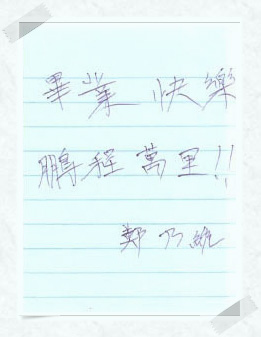 畢業 快樂
鵬程萬里!!
鄭乃維